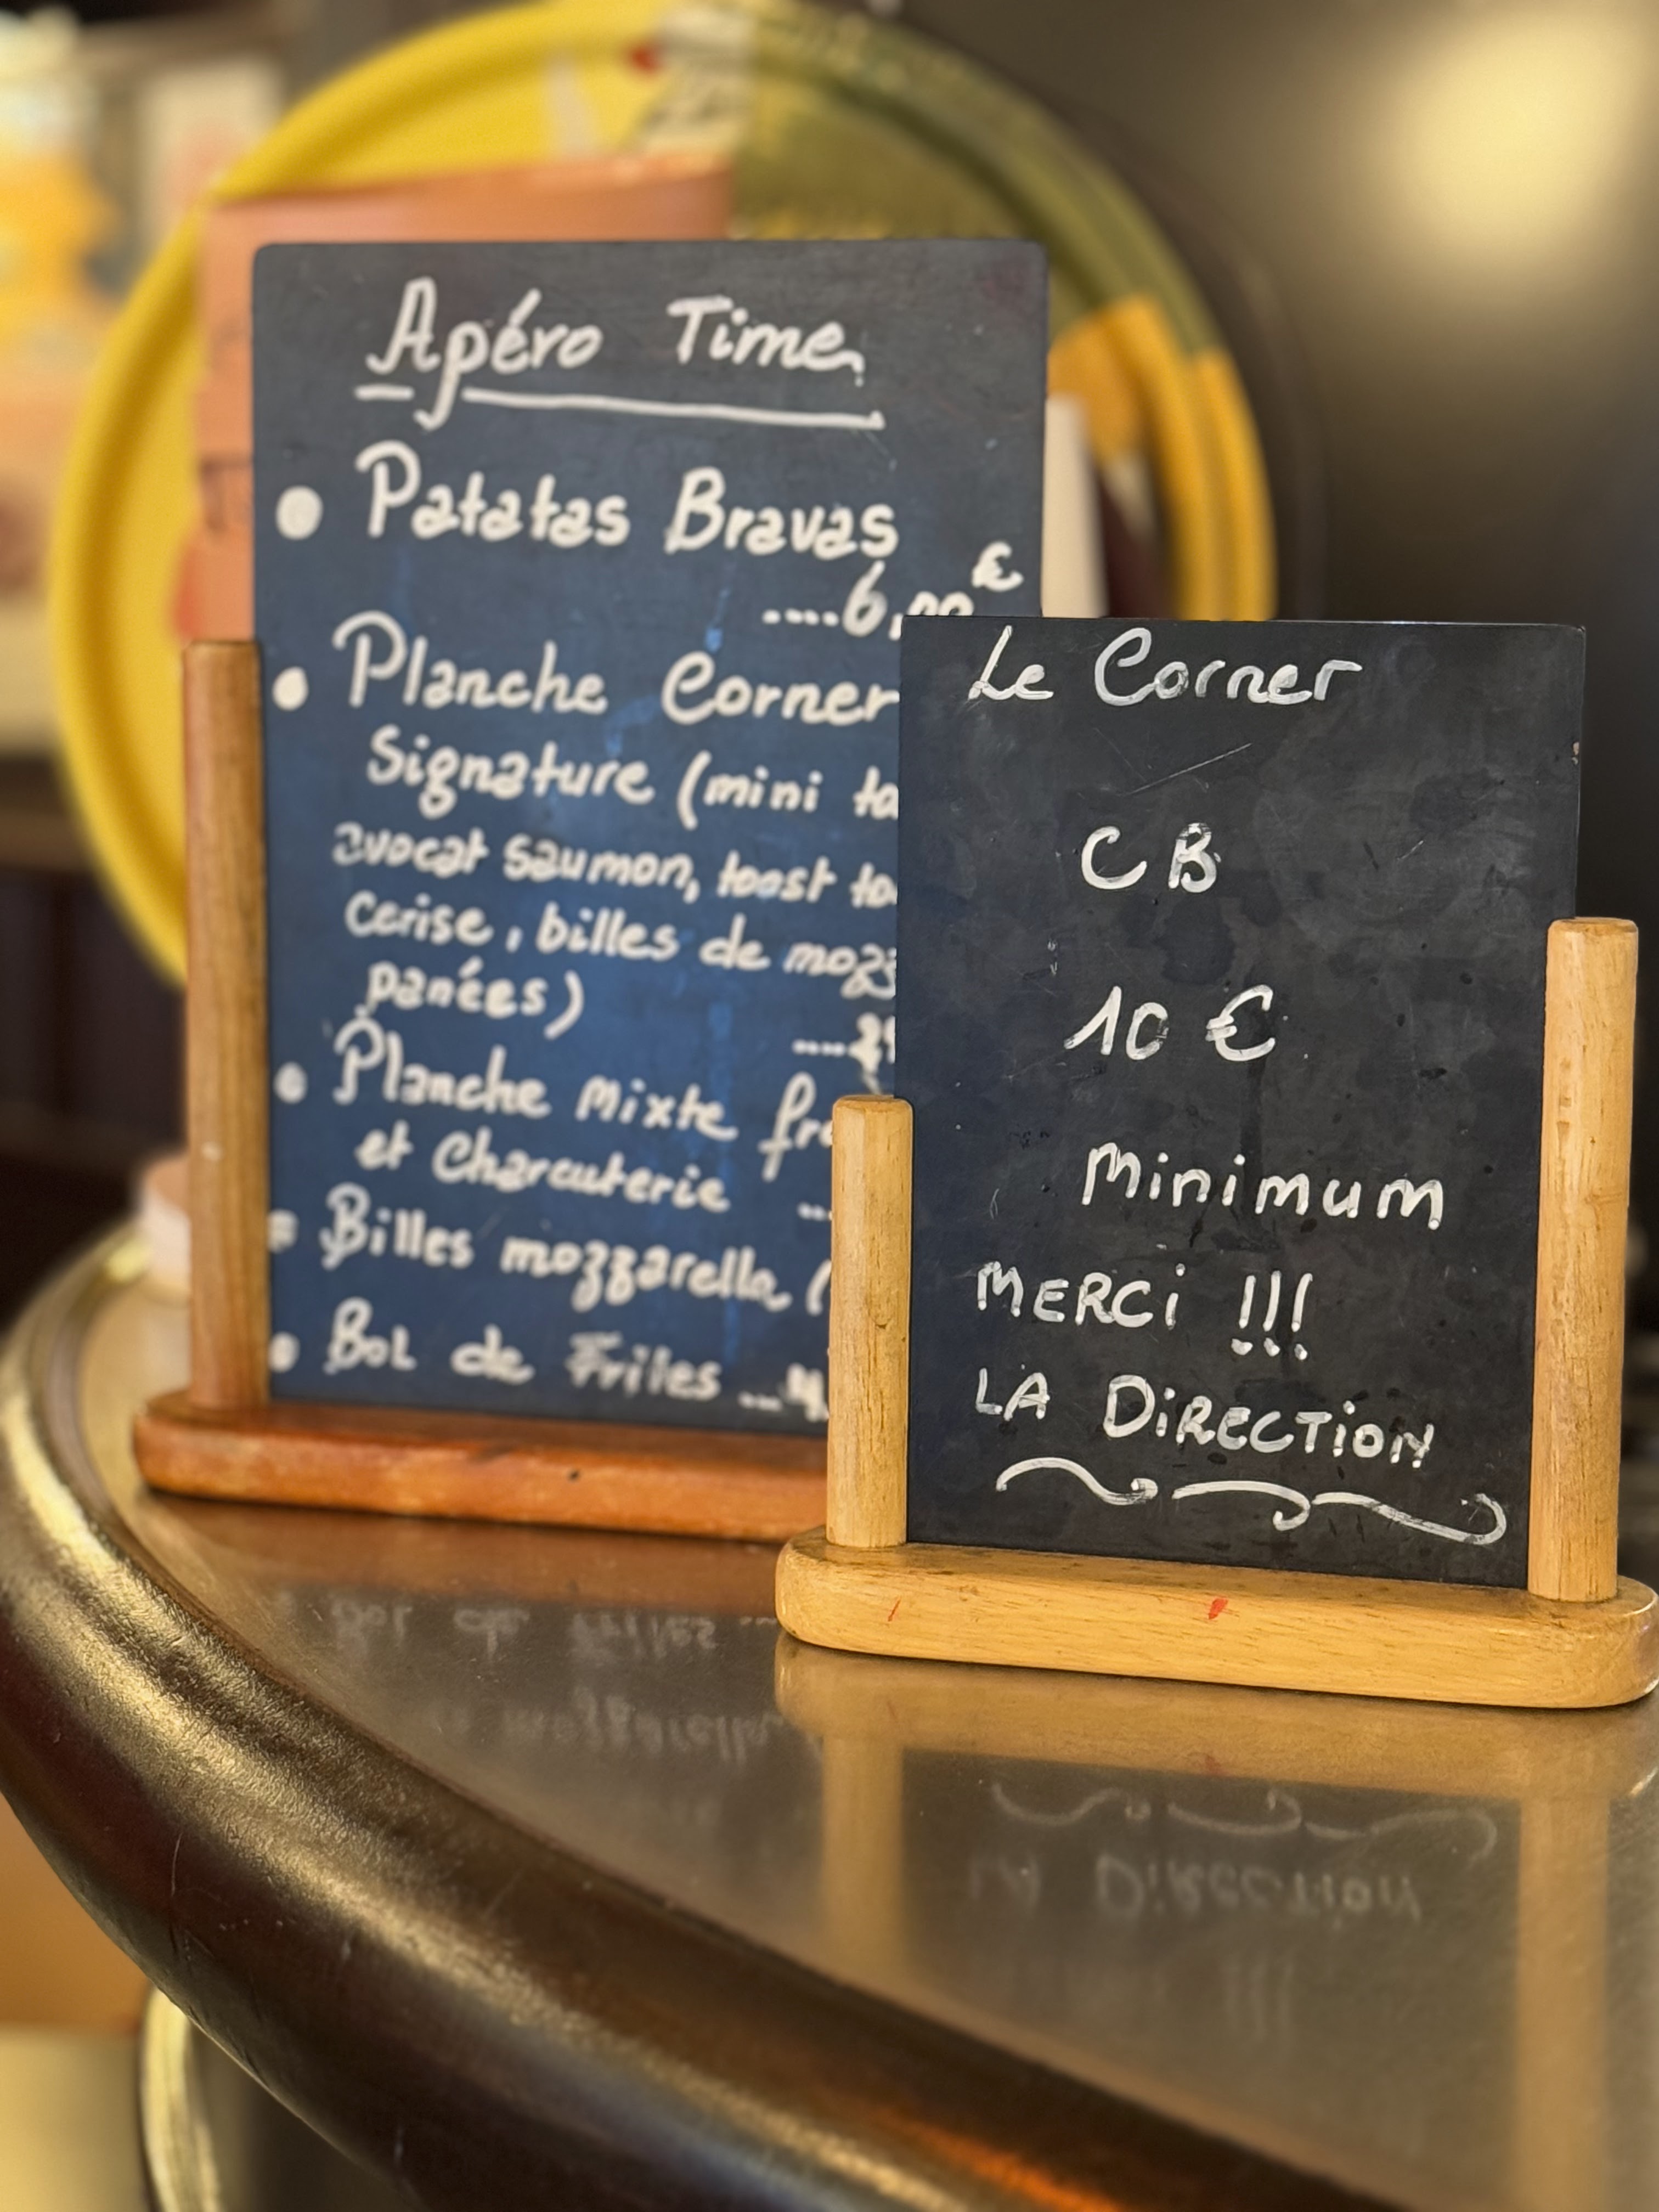 Apéro Time
• Patatas Bravas
....6,00€
• Planche Corner
Signature (mini
avocat saumon, toast
cerise, billes de
panées)
• Planche mixte
et Charcuterie ...
• Billes mozzarella (
• Bol de Frites ...
Le Corner
CB
10 €
Minimum
MERCi !!!
LA DiRECTiON